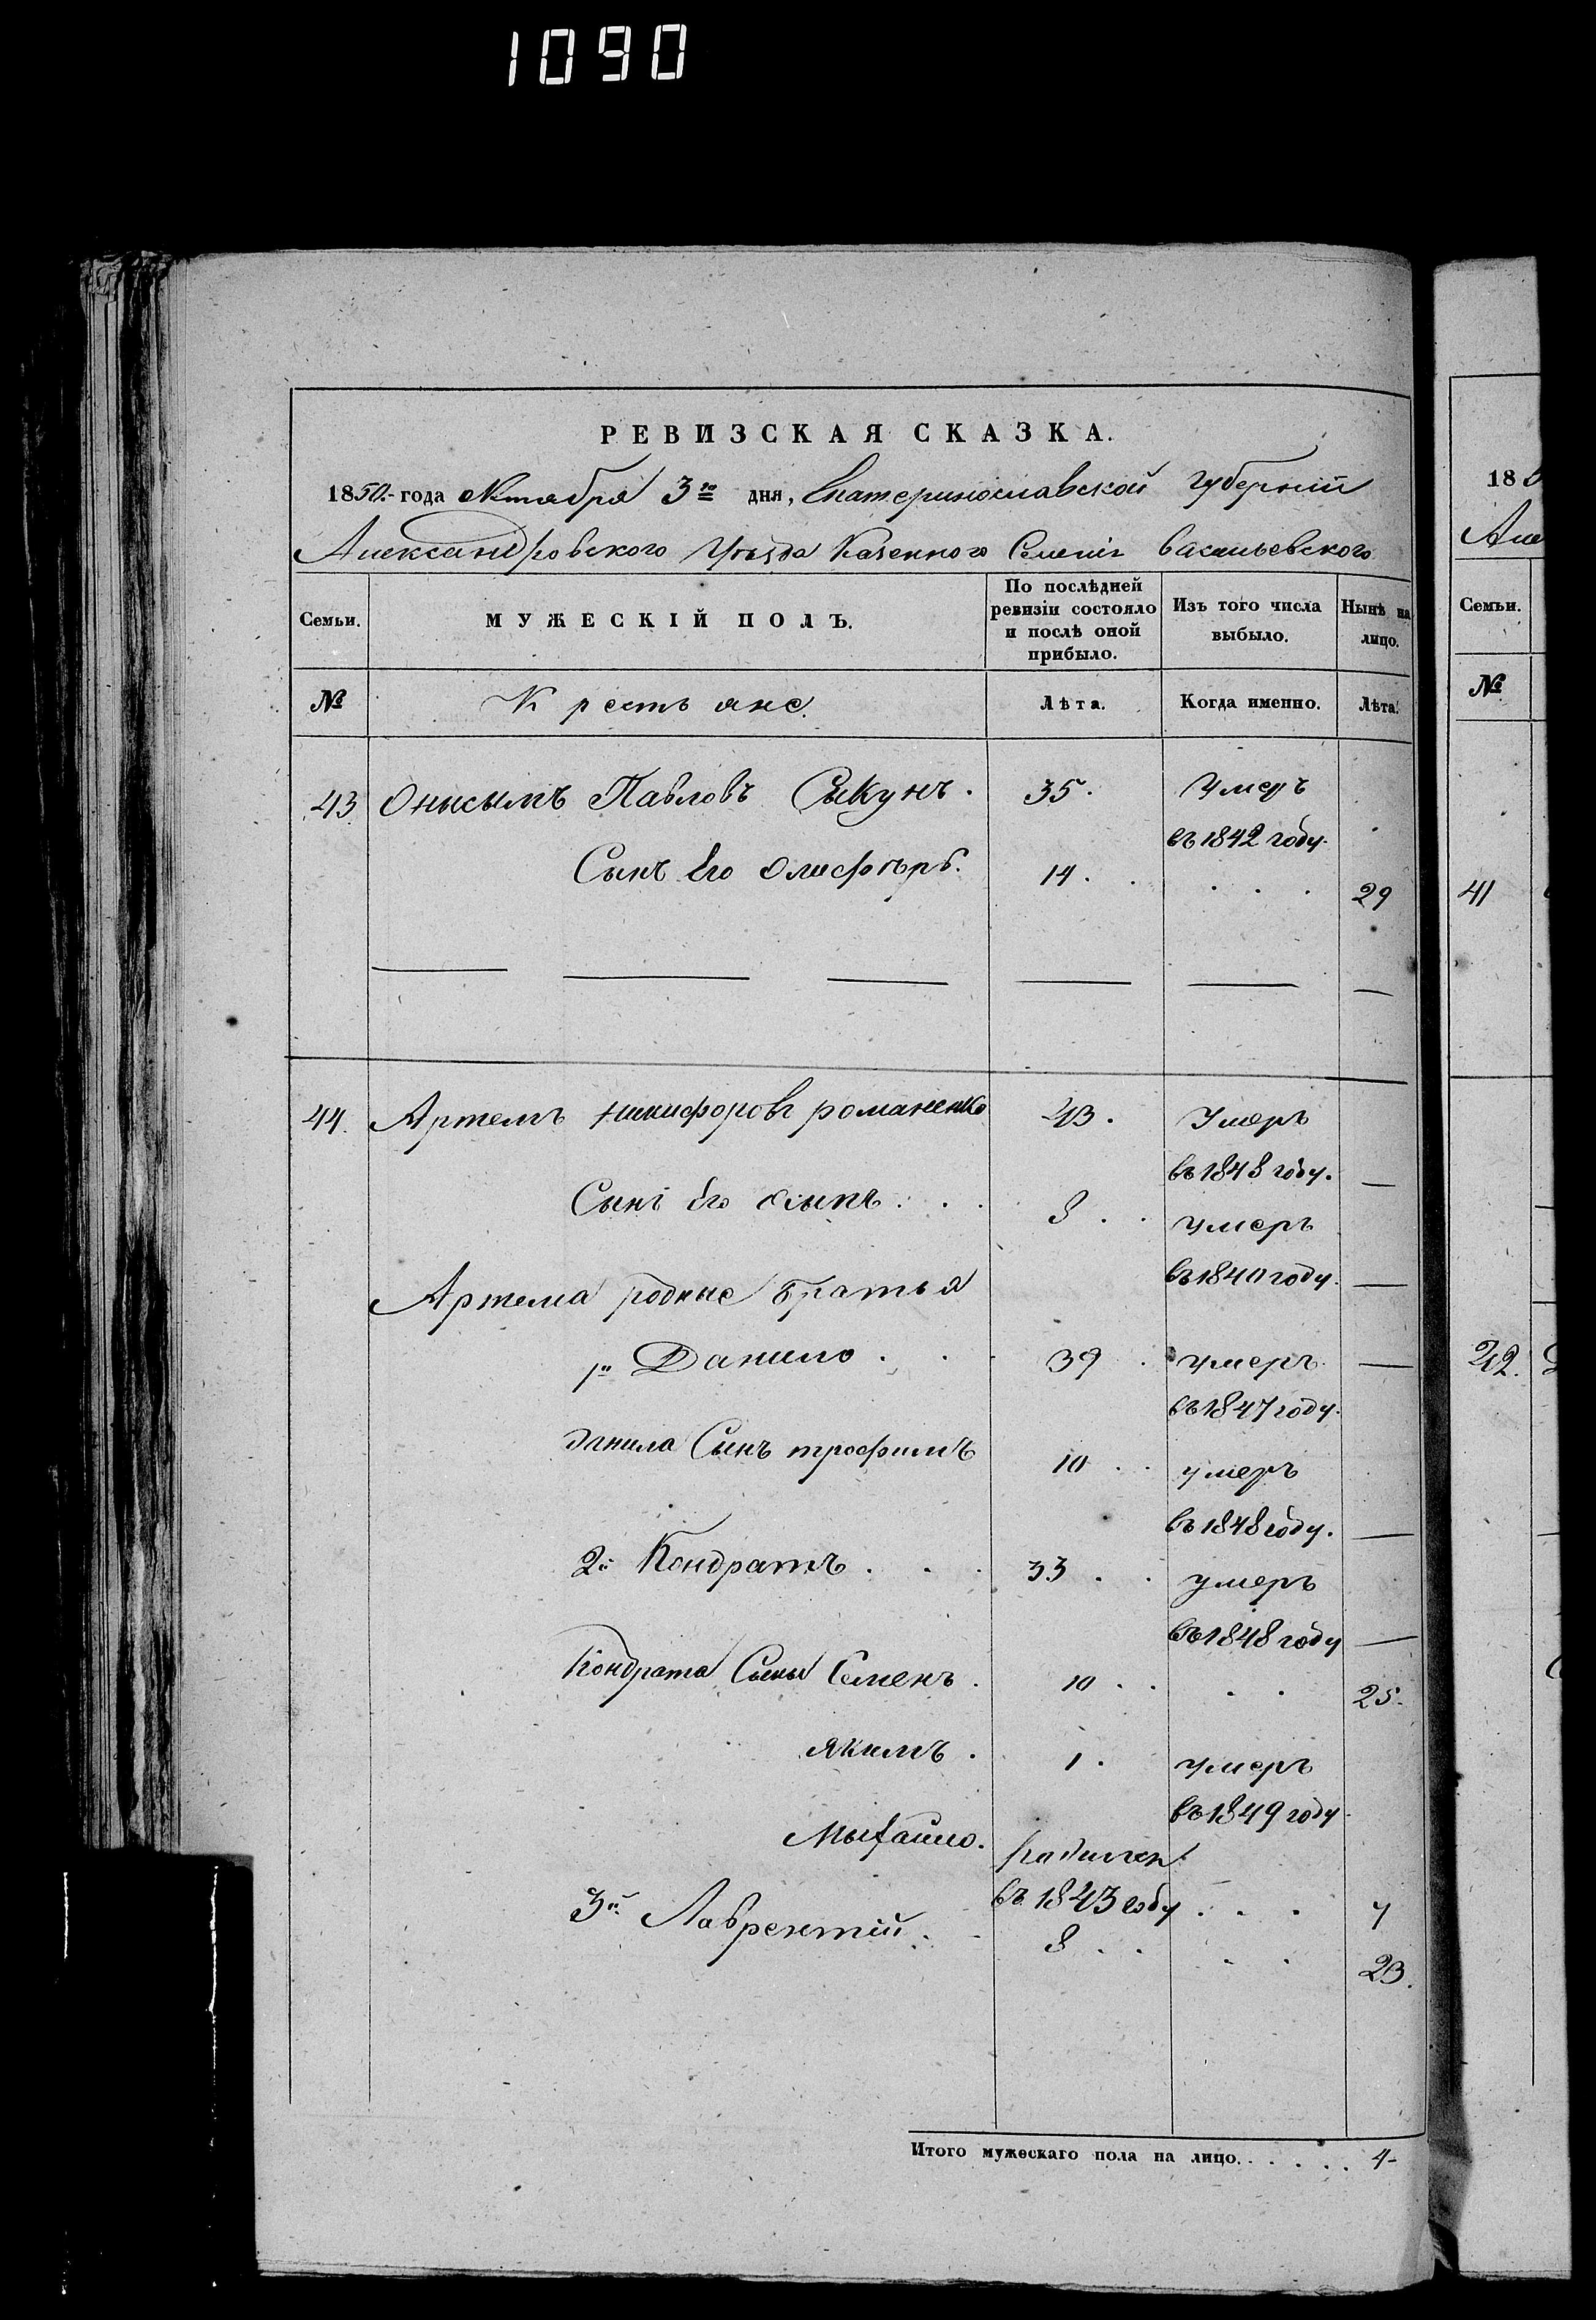 1090
РЕВИЗСКАЯ СКАЗКА.
1850. года октября 3го дня, Екатеринославской губерніи
Александровского Уѣзда Казенного Селенія Васильевского
Семьи. МУЖЕСКІЙ ПОЛЪ. По послѣдней ревизіи состояло и послѣ оной прибыло. Изъ того числа выбыло. Нынѣ на лицо.
№ Крестьяне. Лѣта. Когда именно. Лѣта.
43 Онысымъ Павловъ Сыкунъ. 35. Умеръ
въ 1842 году.
Сынъ Его Олифѣръ. 14. . . . . 29
44. Артемъ Никифоровъ романенко 43. Умеръ
въ 1848 году. —
Сынъ Его Осыпъ . . . 8 . . умеръ
въ 1840 году. —
Артема родные братья
1й Данило . . . 39 . умеръ —
въ 1847 году.
данила Сынъ трофимъ 10 . . умеръ
въ 1848 году. —
2й Кондратъ . . . 33 . . умеръ
въ 1848 году —
Кондрата Сыны Семенъ . 10 . . . . 25.
якимъ . 1 . умеръ
въ 1849 году.
Мыхайло. родился
въ 1843 году . . . 7
3й Лаврентій . . 8 . . . . 23.
Итого мужескаго пола на лицо. . . . . . 4
18
Але
Семьи.
№
41
42.